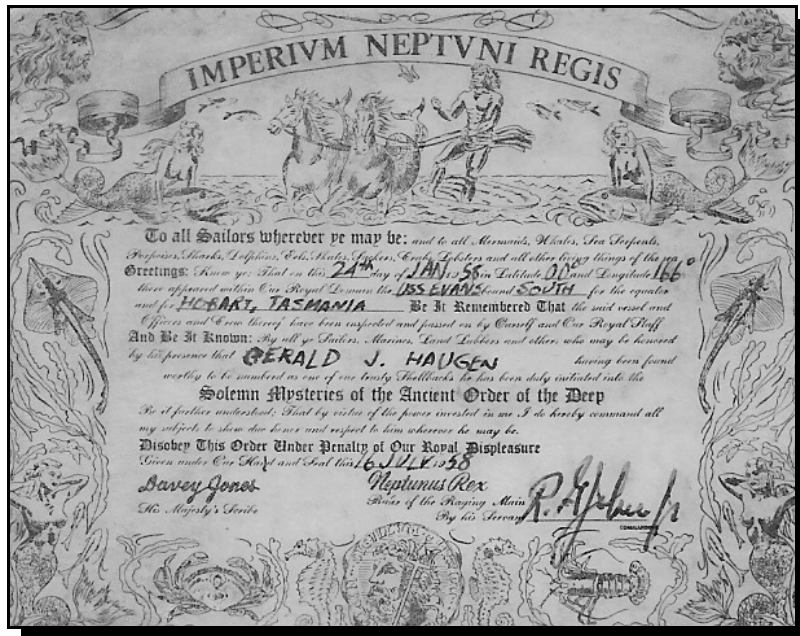 IMPERIVM NEPTVNI REGIS
To all Sailors wherever ye may be: and to all Mermaids, Whales, Sea Serpents,
Porpoises, Sharks, Dolphins, Eels, Skates, Suckers, Crabs, Lobsters and all other living things of the sea
Greetings: Know ye: That on this 24th day of JAN 1958 in Latitude 00° and Longitude 166°
there appeared within Our Royal Domain the USS EVANS bound SOUTH for the equator
and for HOBART, TASMANIA Be It Remembered That the said vessel and
Officers and Crew thereof have been inspected and passed on by Ourself and Our Royal Staff
And Be It Known: By all ye Sailors, Marines, Land Lubbers and others who may be honored
by his presence that GERALD J. HAUGEN having been found
worthy to be numbered as one of our trusty Shellbacks he has been duly initiated into the
Solemn Mysteries of the Ancient Order of the Deep
Be it further understood: That by virtue of the power invested in me I do hereby command all
my subjects to show due honor and respect to him wherever he may be.
Disobey This Order Under Penalty of Our Royal Displeasure
Given under Our Hand and Seal this 16 JULY 1958
Davey Jones Neptunus Rex
His Majesty's Scribe Ruler of the Raging Main
By his Servant